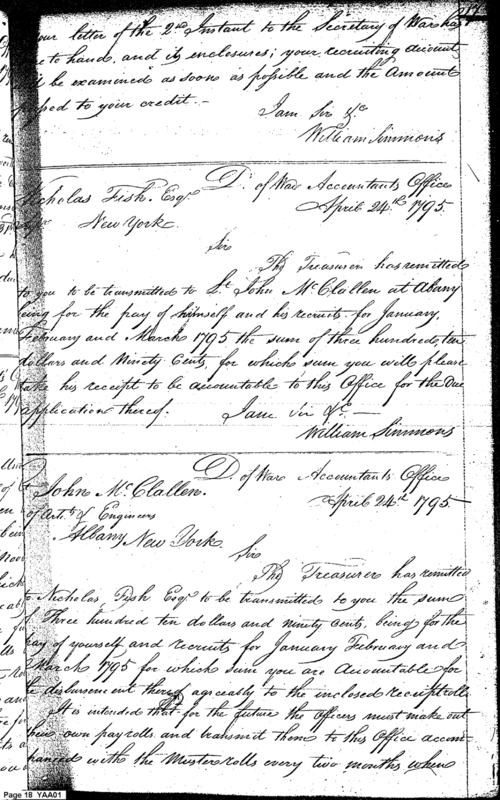 your letter of the 2nd Instant to the Secretary of War has
to hand, and its enclosures; your recruiting account
be examined as soon as possible and the Amount
passed to your credit.—
I am Sir &c
William Simmons
D. of War Accountants Office
April 24th 1795
Nicholas Fish. Esqr
New York.
Sir
The Treasurer has remitted
to you to be transmitted to Lt. John McClallen at Albany
being for the pay of himself and his recruits for January,
February and March 1795 the sum of three hundred, ten
dollars and Ninety Cents, for which sum you will please
take his receipt to be accountable to this Office for the due
application thereof. I am Sir &c.—
William Simmons
D. of War Accountants Office
April 24th 1795
John McClallen.
of Arts. & Engineers
Albany New York
Sir
The Treasurer has remitted
to Nicholas Fish Esqr to be transmitted to you the sum
of Three hundred ten dollars and ninety cents, being for the
pay of yourself and recruits for January February and
March 1795 for which sum you are Accountable for
the disbursement thereof agreeably to the inclosed receiptroll.
It is intended that for the future the Officers must make out
their own payrolls and transmit them to this Office accom-
panied with the Musterrolls every two months when
Page 18 YAA01